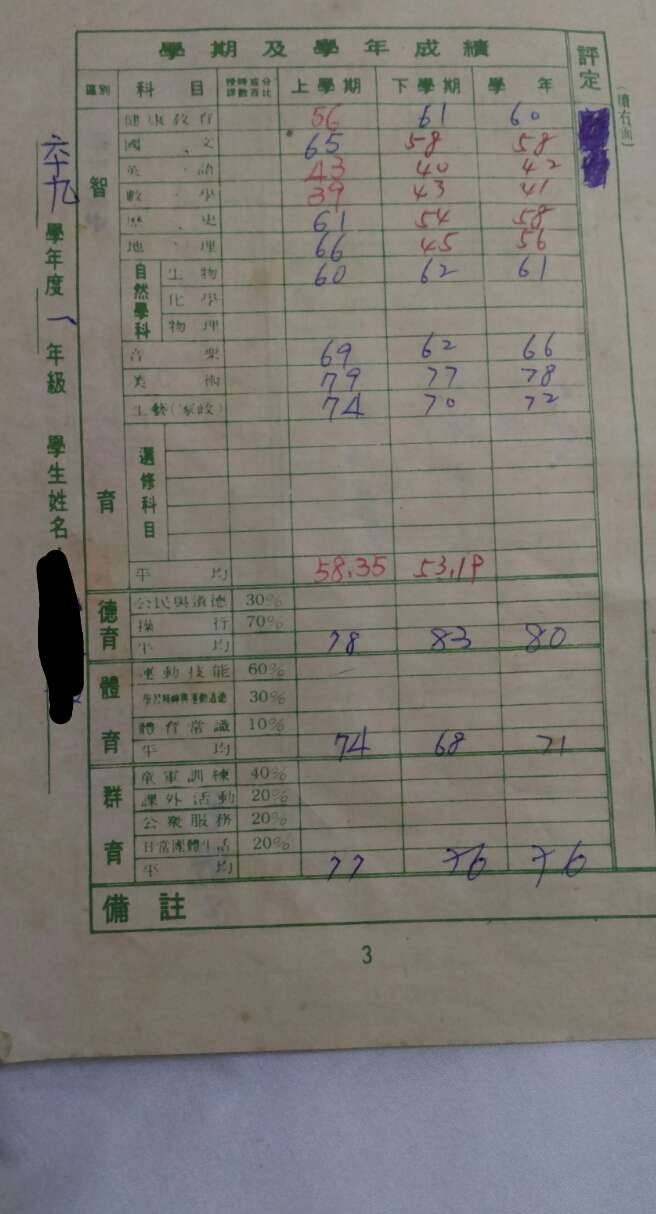 學期及學年成績
評定
(續右面)
區別 科目 上學期 下學期 學年
智育
健康教育 56 61 60
國文 65 58 58
英語 43 40 42
數學 39 43 41
歷史 61 54 58
地理 66 45 56
自然學科
生物 60 62 61
化學
物理
音樂 69 62 66
美術 79 77 78
工藝(家政) 74 70 72
選修科目
平均 58.35 53.19
德育
公民與道德 30%
操行 70%
平均 78 83 80
體育
運動技能 60%
30%
體育常識 10%
平均 74 68 71
群育
童軍訓練 40%
課外活動 20%
公眾服務 20%
日常團體生活 20%
平均 77 76 76
備註
3
六十九學年度一年級 學生姓名